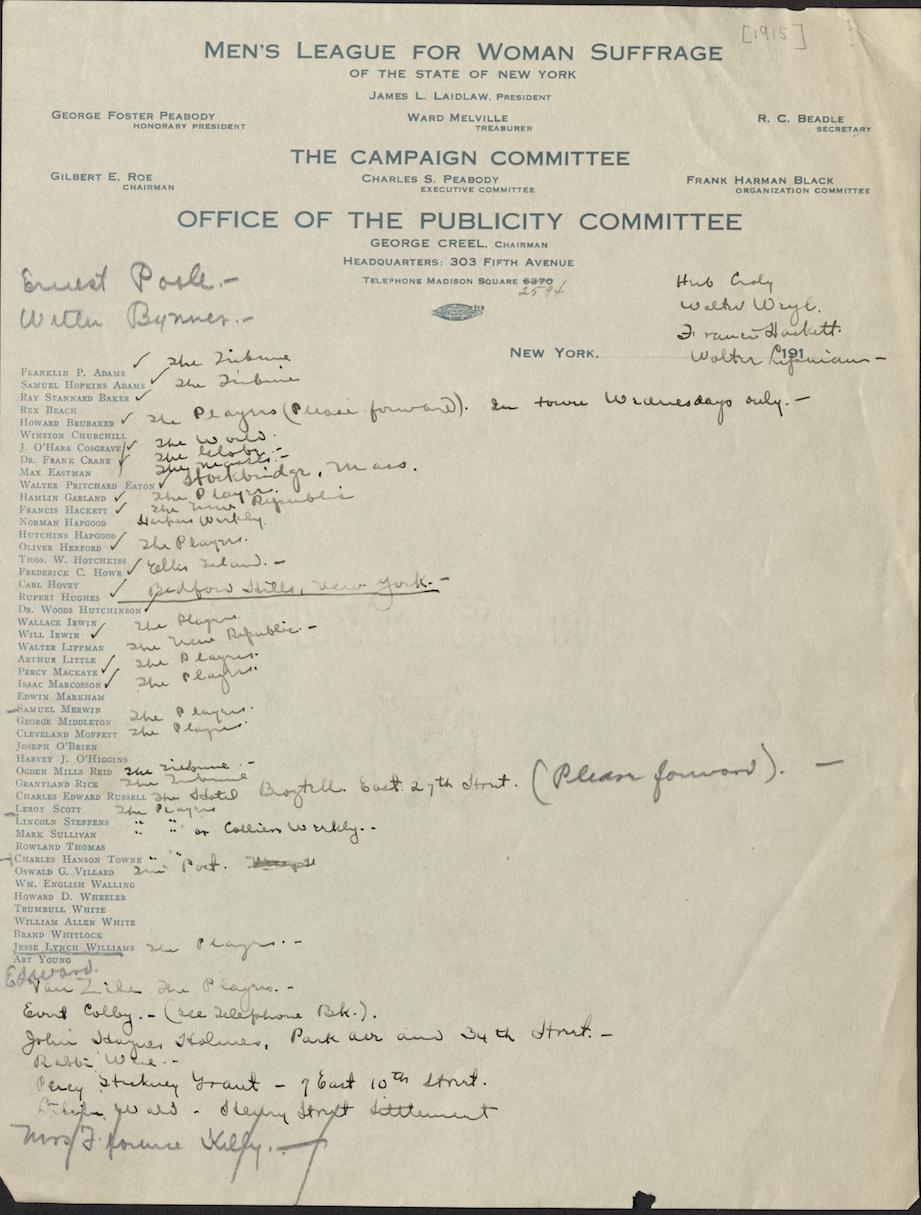 [1915]
MEN'S LEAGUE FOR WOMAN SUFFRAGE
OF THE STATE OF NEW YORK
JAMES L. LAIDLAW, PRESIDENT
GEORGE FOSTER PEABODY
HONORARY PRESIDENT
WARD MELVILLE
TREASURER
R. C. BEADLE
SECRETARY
THE CAMPAIGN COMMITTEE
GILBERT E. ROE
CHAIRMAN
CHARLES S. PEABODY
EXECUTIVE COMMITTEE
FRANK HARMAN BLACK
ORGANIZATION COMMITTEE
OFFICE OF THE PUBLICITY COMMITTEE
GEORGE CREEL, CHAIRMAN
HEADQUARTERS: 303 FIFTH AVENUE
TELEPHONE MADISON SQUARE 6370
2594
Ernest Poole.-
Witter Bynner.-
Herb Croly
Walter Weyl.
Francis Hackett.
Walter Lippmann-
NEW YORK, 191
FRANKLIN P. ADAMS ✓ The Tribune
SAMUEL HOPKINS ADAMS ✓ The Tribune
RAY STANNARD BAKER ✓
REX BEACH
HOWARD BRUBAKER ✓ The Players (Please forward). In town Wednesdays only.-
WINSTON CHURCHILL
J. O'HARA COSGRAVE ✓ The World.
DR. FRANK CRANE ✓ The Globe.-
MAX EASTMAN The Masses.-
WALTER PRITCHARD EATON ✓ Stockbridge, Mass.
HAMLIN GARLAND ✓ The Players.
FRANCIS HACKETT ✓ The New Republic
NORMAN HAPGOOD Harpers Weekly.
HUTCHINS HAPGOOD
OLIVER HERFORD ✓ The Players.
THOS. W. HOTCHKISS
FREDERICK C. HOWE ✓ Ellis Island.-
CARL HOVEY
RUPERT HUGHES ✓ Bedford Hills, New York.-
DR. WOODS HUTCHINSON ✓
WALLACE IRWIN The Players.
WILL IRWIN ✓
WALTER LIPPMAN The New Republic.-
ARTHUR LITTLE ✓ The Players.
PERCY MACKAYE ✓ The Players.
ISAAC MARCOSSON ✓
EDWIN MARKHAM
SAMUEL MERWIN
GEORGE MIDDLETON The Players.
CLEVELAND MOFFETT The Players
JOSEPH O'BRIEN
HARVEY J. O'HIGGINS
OGDEN MILLS REID The Tribune.-
GRANTLAND RICE The Tribune
CHARLES EDWARD RUSSELL The Hotel Broztell. East 27th Street. (Please forward).-
LEROY SCOTT The Players
LINCOLN STEFFENS " " or Colliers Weekly.-
MARK SULLIVAN
ROWLAND THOMAS
CHARLES HANSON TOWNE " "
OSWALD G. VILLARD Post.
WM. ENGLISH WALLING
HOWARD D. WHEELER
TRUMBULL WHITE
WILLIAM ALLEN WHITE
BRAND WHITLOCK
JESSE LYNCH WILLIAMS The Players.-
ART YOUNG
Edward
Van Zile The Players.-
Colby.- (See Telephone Bk.).
John Haynes Holmes, Park Ave and 34th Street.-
Rabbi Wise.-
Percy Stickney Grant - 7 East 10th Street.
Lillian Wald - Henry Street Settlement
Mrs Florence Kelly.-